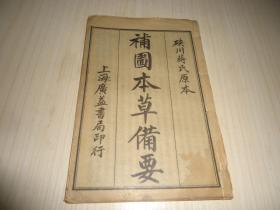 硤川蔣氏原本
補圖本草備要
上海廣益書局印行